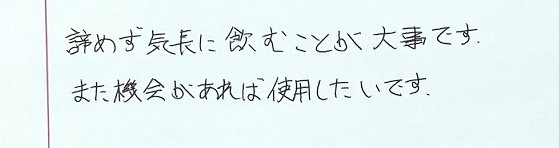 諦めず気長に飲むことが大事です.
また機会があれば使用したいです.